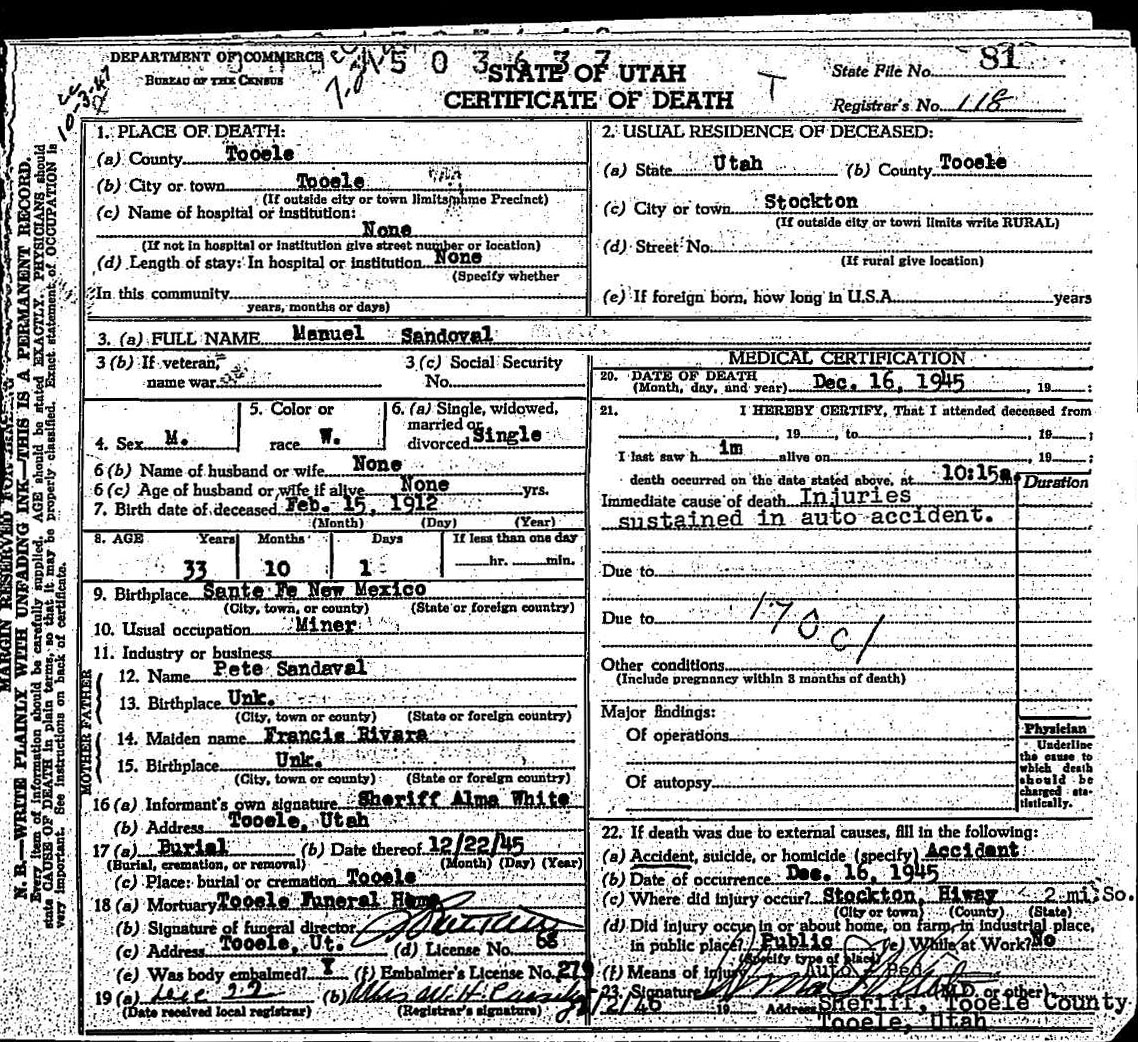 DEPARTMENT OF COMMERCE
BUREAU OF THE CENSUS
503637
STATE OF UTAH
CERTIFICATE OF DEATH
T
State File No. 81
Registrar's No. 118
10-3-47
MARGIN RESERVED FOR
N. B.—WRITE PLAINLY WITH UNFADING INK—THIS IS A PERMANENT RECORD.
Every item of information should be carefully supplied. AGE should be stated EXACTLY. PHYSICIANS should
state CAUSE OF DEATH in plain terms, so that it may be properly classified. Exact statement of OCCUPATION is
very important. See instructions on back of certificate.
1. PLACE OF DEATH:
(a) County Tooele
(b) City or town Tooele
(If outside city or town limits name Precinct)
(c) Name of hospital or institution:
None
(If not in hospital or institution give street number or location)
(d) Length of stay: In hospital or institution None
(Specify whether
In this community
years, months or days)
2. USUAL RESIDENCE OF DECEASED:
(a) State Utah (b) County Tooele
(c) City or town Stockton
(If outside city or town limits write RURAL)
(d) Street No.
(If rural give location)
(e) If foreign born, how long in U.S.A. years
3. (a) FULL NAME Manuel Sandoval
3 (b) If veteran, name war
3 (c) Social Security No.
4. Sex M.
5. Color or race W.
6. (a) Single, widowed, married or divorced Single
6 (b) Name of husband or wife None
6 (c) Age of husband or wife if alive None yrs.
7. Birth date of deceased Feb. 15, 1912
(Month) (Day) (Year)
8. AGE Years Months Days If less than one day
33 10 1 hr. min.
9. Birthplace Sante Fe New Mexico
(City, town, or county) (State or foreign country)
10. Usual occupation Miner
11. Industry or business
FATHER
12. Name Pete Sandaval
13. Birthplace Unk.
(City, town or county) (State or foreign country)
MOTHER
14. Maiden name Francis Rivara
15. Birthplace Unk.
(City, town or county) (State or foreign country)
16 (a) Informant's own signature Sheriff Alma White
(b) Address Tooele, Utah
17 (a) Burial (b) Date thereof 12/22/45
(Burial, cremation, or removal) (Month) (Day) (Year)
(c) Place: burial or cremation Tooele
18 (a) Mortuary Tooele Funeral Home
(b) Signature of funeral director
(c) Address Tooele, Ut. (d) License No. 68
(e) Was body embalmed? Y (f) Embalmer's License No. 279
19 (a) Dec 22 (b)
(Date received local registrar) (Registrar's signature)
MEDICAL CERTIFICATION
20. DATE OF DEATH
(Month, day, and year) Dec. 16, 1945, 19 :
21. I HEREBY CERTIFY, That I attended deceased from
, 19 , to , 19 ;
I last saw h im alive on , 19 ;
death occurred on the date stated above, at 10:15a
Duration
Immediate cause of death Injuries
sustained in auto accident.
Due to
Due to
170c1
Other conditions
(Include pregnancy within 3 months of death)
Major findings:
Of operations
Of autopsy
Physician
Underline
the cause to
which death
should be
charged sta-
tistically.
22. If death was due to external causes, fill in the following:
(a) Accident, suicide, or homicide (specify) Accident
(b) Date of occurrence Dec. 16, 1945
(c) Where did injury occur? Stockton, Hiway 2 mi. So.
(City or town) (County) (State)
(d) Did injury occur in or about home, on farm, in industrial place,
in public place? Public (e) While at Work? No
(Specify type of place)
(f) Means of injury Auto Ped
23. Signature (M.D. or other)
1/2/46 19 Address Sheriff, Tooele County
Tooele, Utah